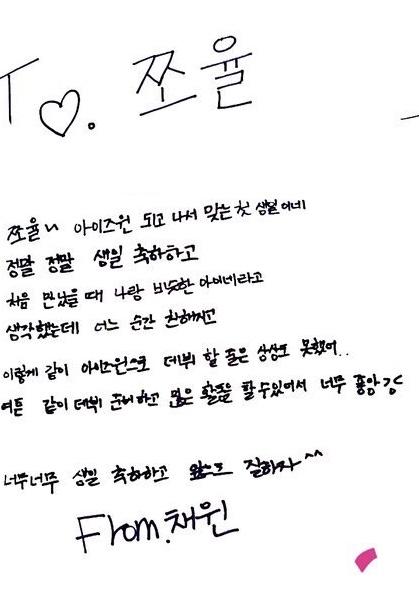 To♡. 쪼율
쪼율~ 아이즈원 되고 나서 맞는 첫 생일이네
정말 정말 생일 축하하고
처음 만났을 때 나랑 비슷한 아이네라고
생각했는데 어느 순간 친해지고
이렇게 같이 아이즈원으로 데뷔 할 줄은 상상도 못했어..
여튼 같이 데뷔 준비하고 많은 활동을 할 수 있어서 너무 좋앙
너무너무 생일 축하하고 앞으로 잘하자^^
From.채원